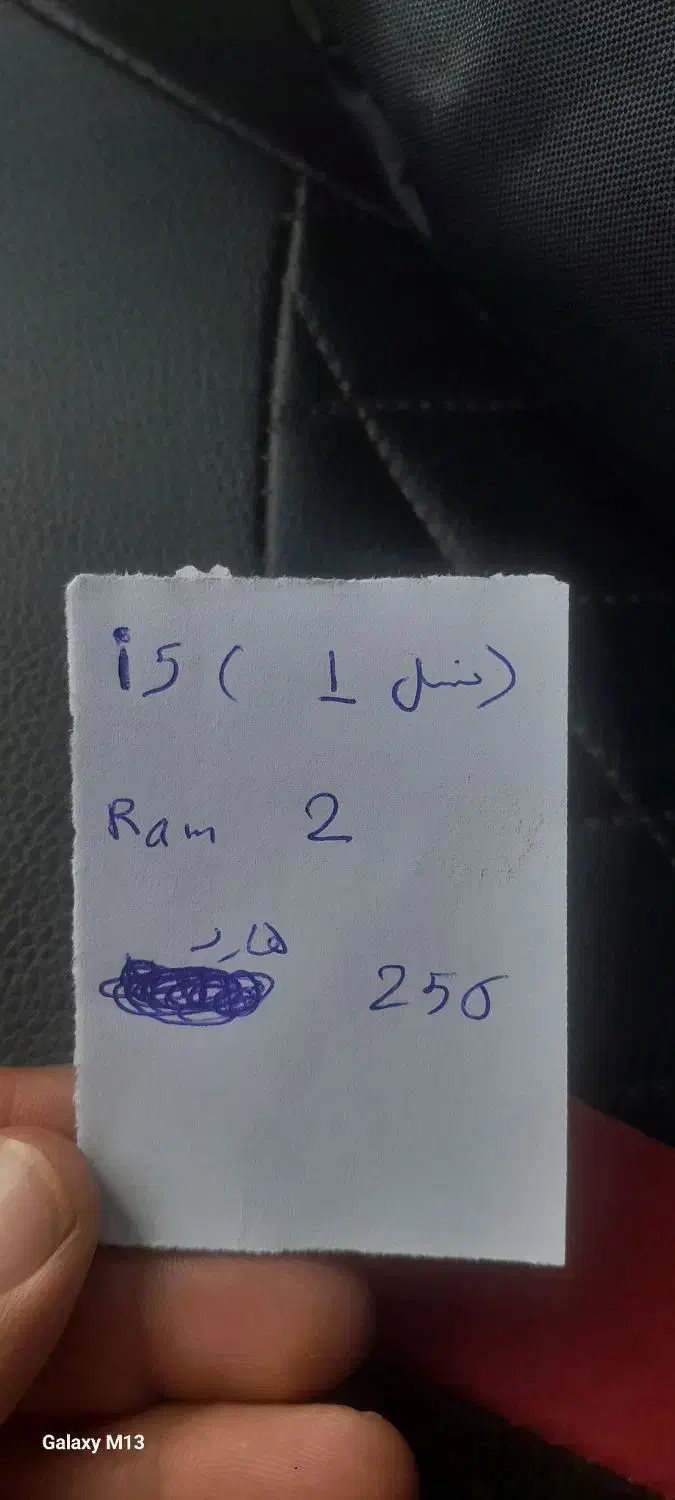 i5 ( نسل 1 )
Ram 2
هارد 256
Galaxy M13